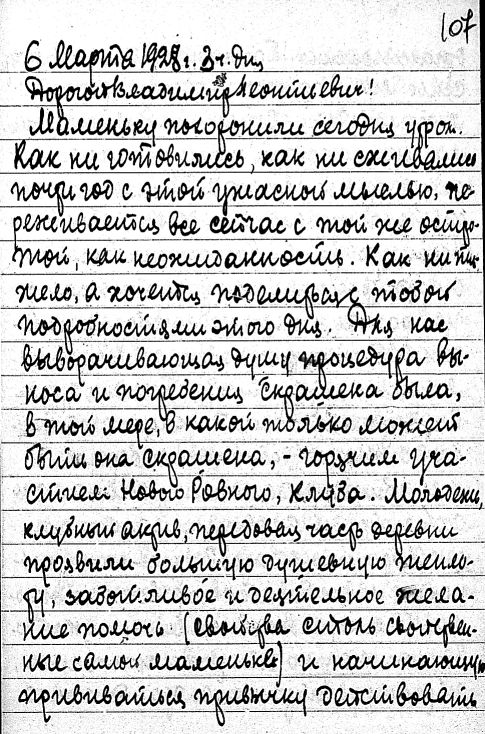 107
6 Марта 1928 г. 3 ч. дня
Дорогой Владимир Леонтьевич!
Маменьку похоронили сегодня утром.
Как ни готовились, как ни сживались
почти год с этой ужасной мыслью, пе-
реживается все сейчас с той же остро-
той, как неожиданность. Как ни тя-
жело, а хочется поделиться с тобой
подробностями этого дня. Для нас
выворачивающая душу процедура вы-
носа и погребения скрашена была,
в той мере, в какой только может
быть она скрашена, - горячим уча-
стием Нового Ровного, клуба. Молодежь,
клубный актив, передовая часть деревни
проявили большую душевную тепло-
ту, заботливое и деятельное жела-
ние помочь (свойства столь свойствен-
ные самой маменьке) и начинающую
прививаться привычку действовать